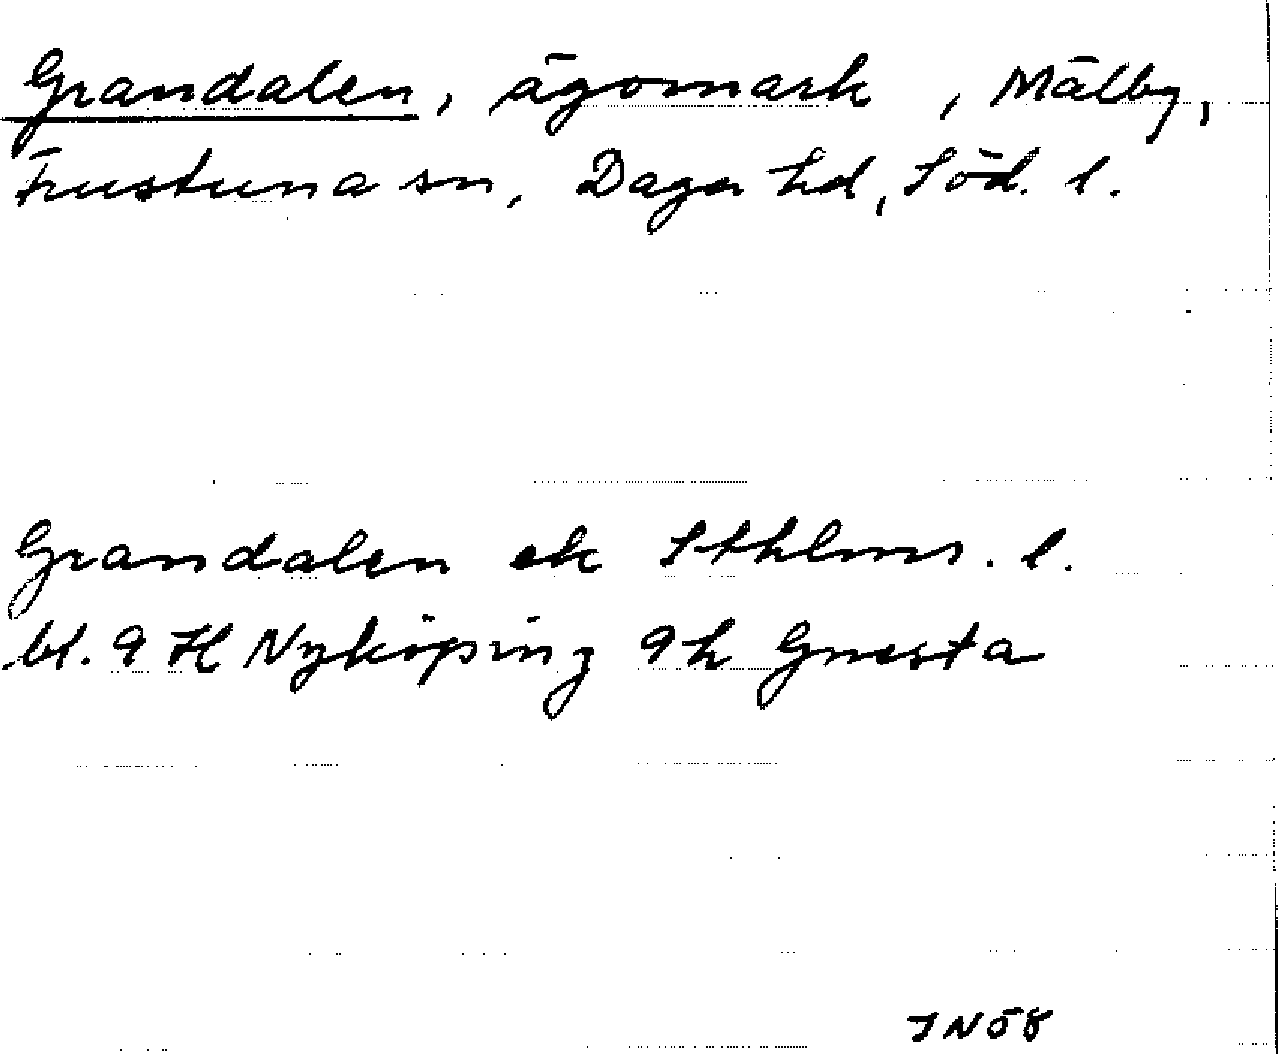 Grandalen, ägomark, Mälby,
Frustuna sn, Daga hd, Söd. l.
Grandalen ek Sthlms. l.
bl. 9 H Nyköping 9 h Gnesta